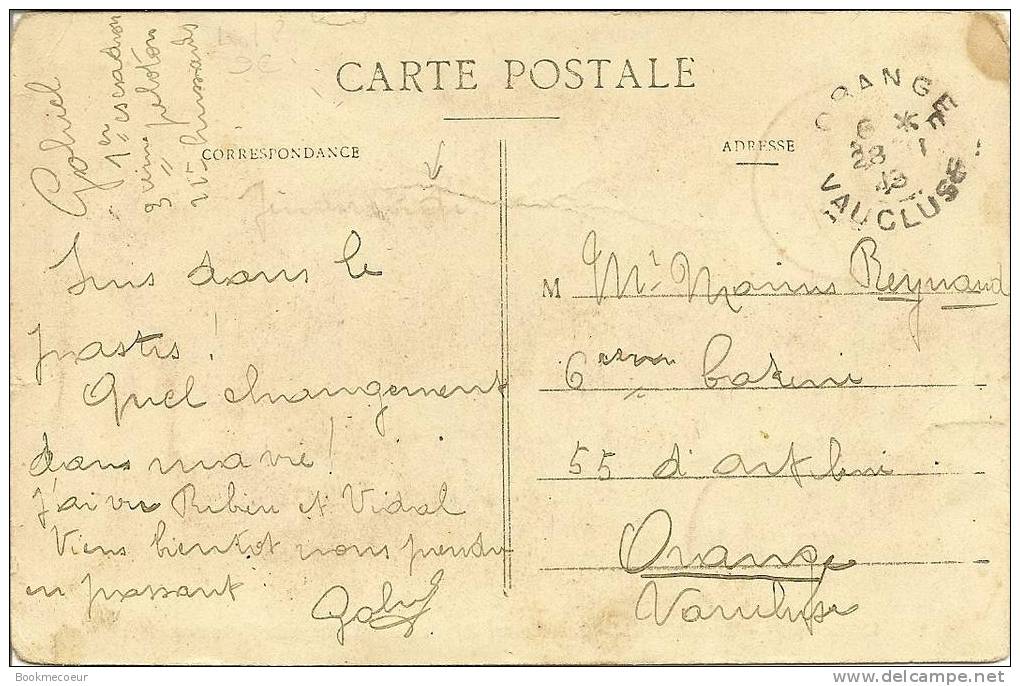 CARTE POSTALE
CORRESPONDANCE
ADRESSE
ORANGE
6 *
28 1
13
VAUCLUSE
1er escadron
3eime peloton
11e hussards
Suis dans le
pastis !
Quel changement
dans ma vie !
J'ai vu Ribieu et Vidal
Viens bientôt nous prendre
en passant
M Mr Marius Reynaud
6eme baterie
55 d'art
Orange
Vaucluse
Bookmecoeur
delcampe.net